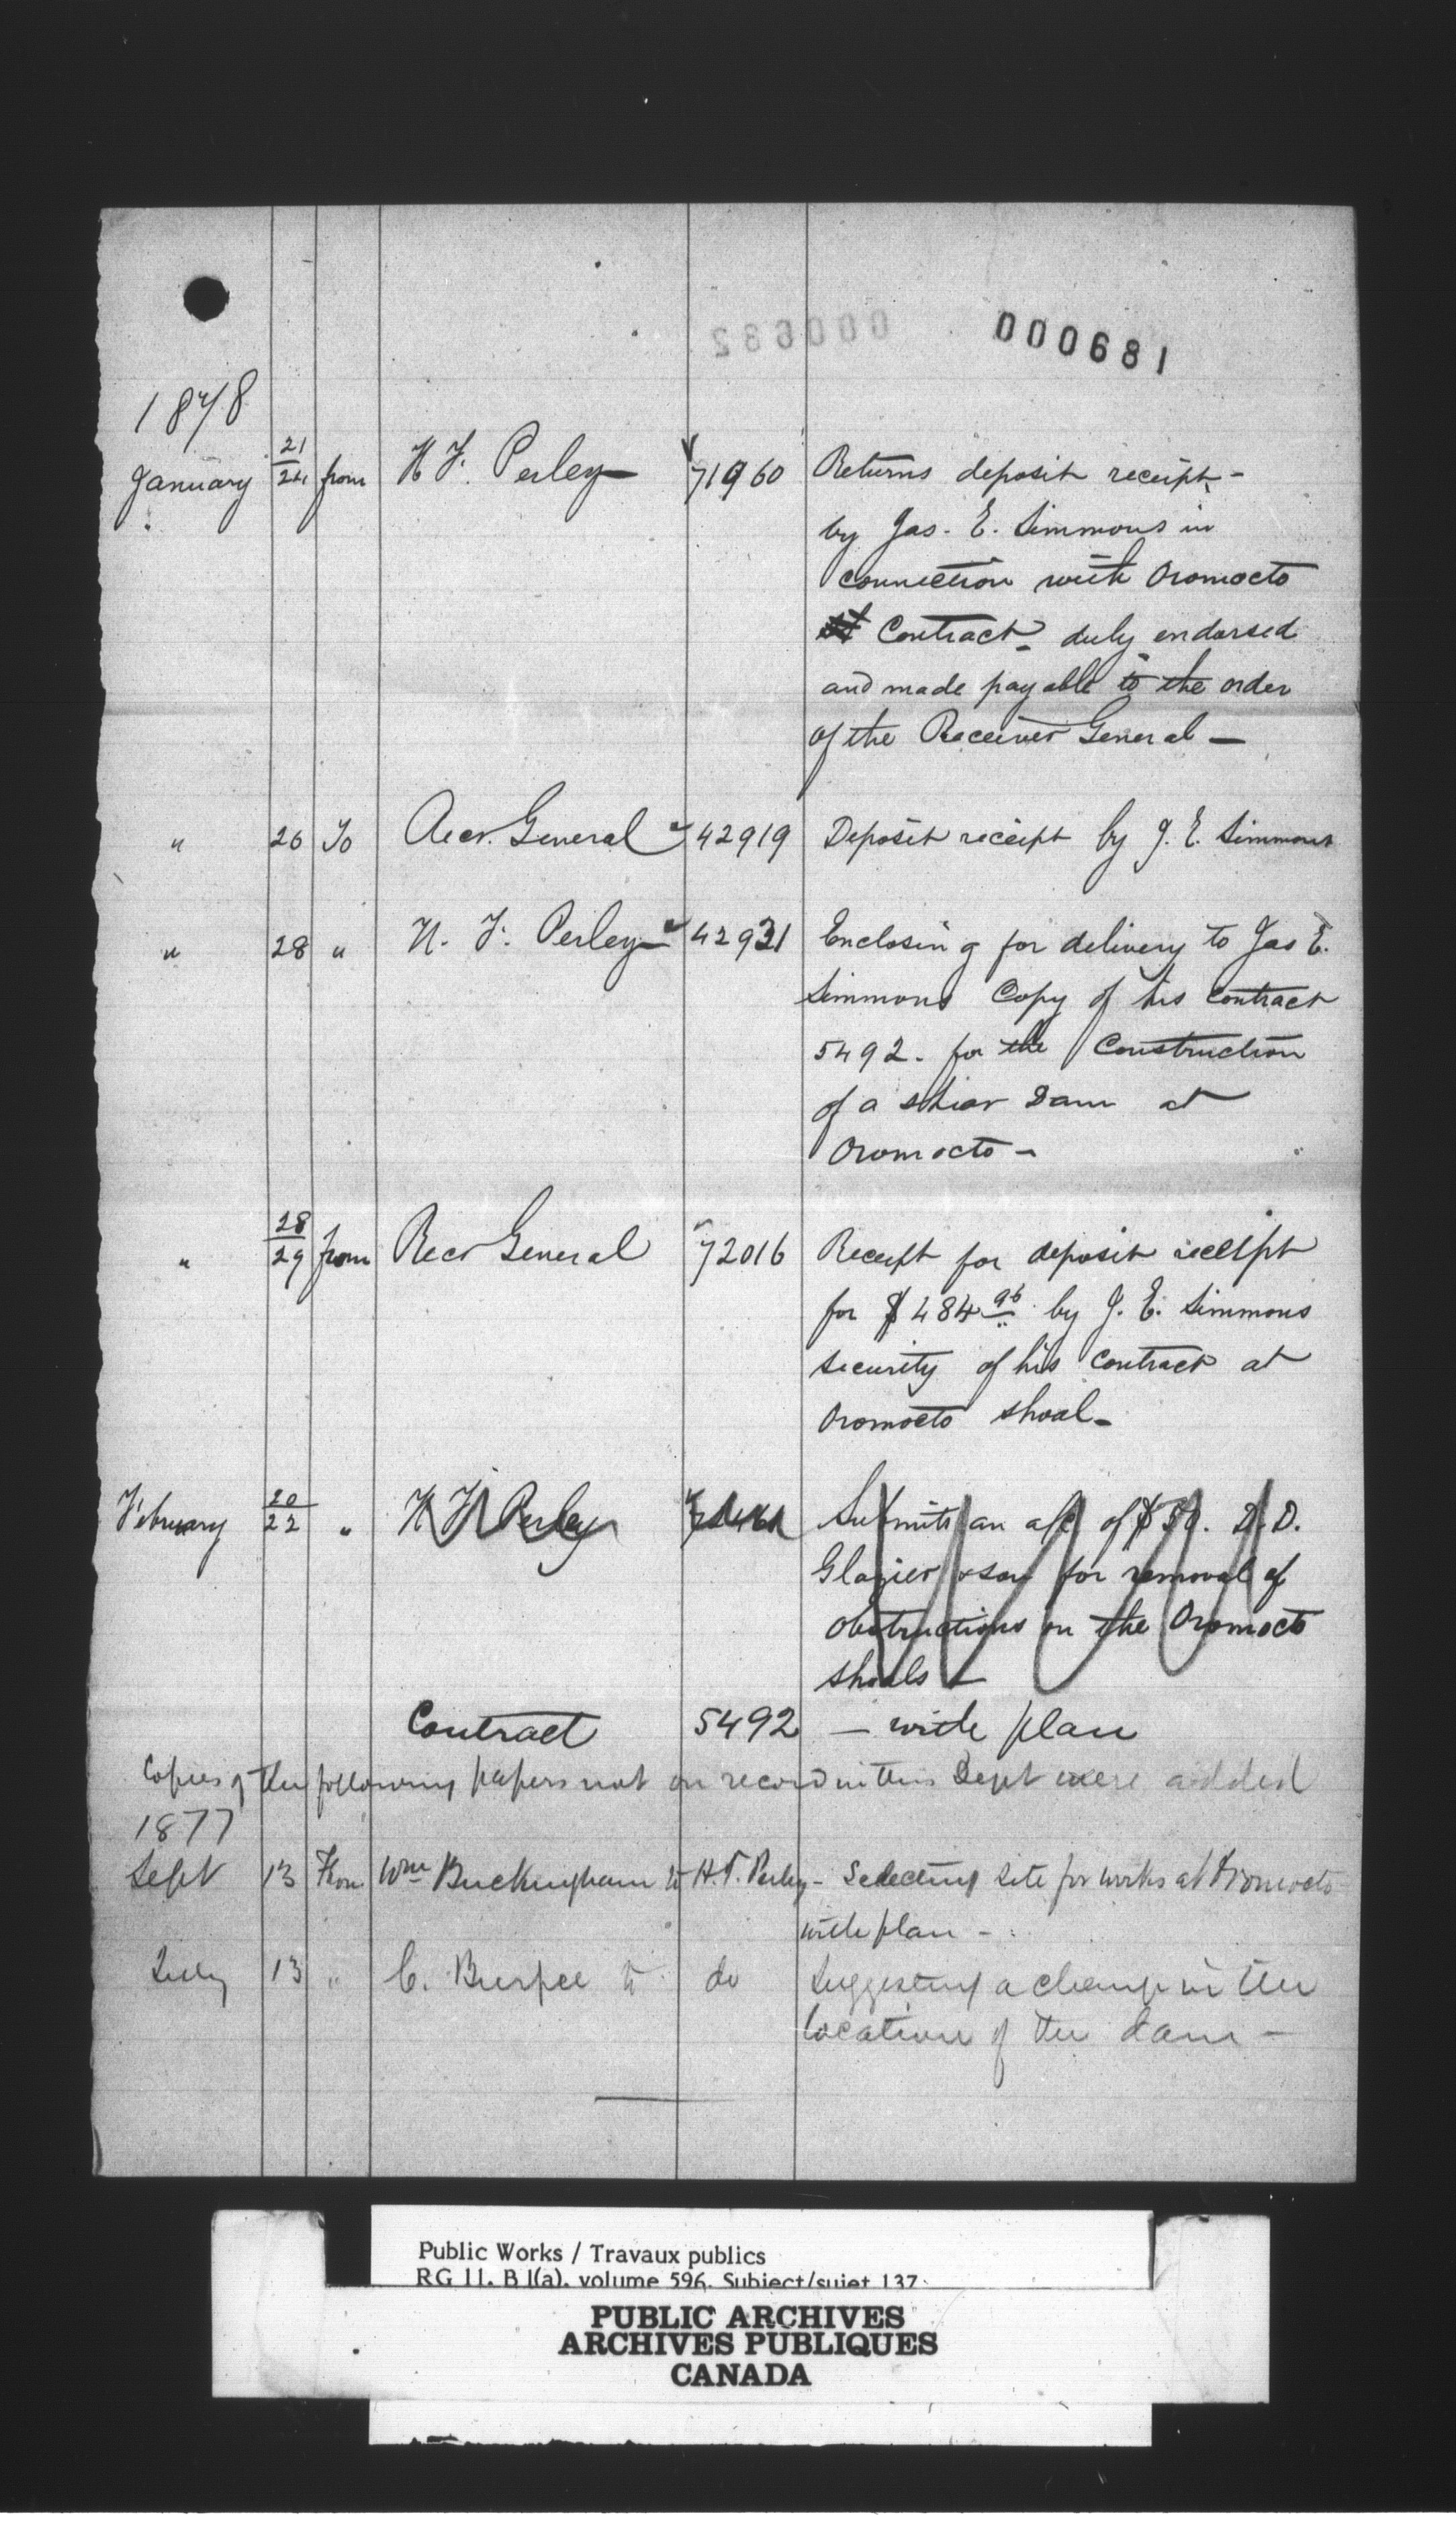 000681
000682
1878
January 21/24 from H F. Perley 71960 Returns deposit receipt -
by Jas. E. Simmons in
connection with Oromocto
Contract - duly endorsed
and made payable to the order
of the Receiver General -
" 26 To Recr. General 42919 Deposit receipt by J. E. Simmons
" 28 " H. F. Perley 42931 Enclosing for delivery to Jas E.
Simmons Copy of his Contract
5492. for the Construction
of a shear Dam at
Oromocto -
" 28/29 from Recr General 72016 Receipt for deposit receipt
for $484 96 by J. E. Simmons
security of his Contract at
Oromocto shoal -
February 20/22 " H F Perley Submits an a/c of $50. D. D.
Glazier & son for removal of
obstructions on the Oromocto
shoals -
Contract 5492 - with plan
Copies of the following papers not on record in this Dept were added
1877
Sept 13 From Wm Buckingham to H. F. Perley - Selecting site for works at Oromocto
with plan -
July 13 " C. Burpee to do Suggesting a change in the
location of the dam -
Public Works / Travaux publics
RG 11, B 1(a), volume 596, Subject/sujet 137
PUBLIC ARCHIVES
ARCHIVES PUBLIQUES
CANADA